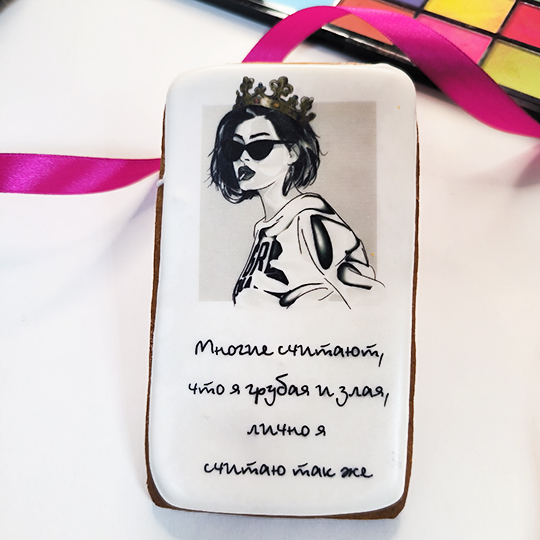 Многие считают,
что я грубая и злая,
лично я
считаю так же